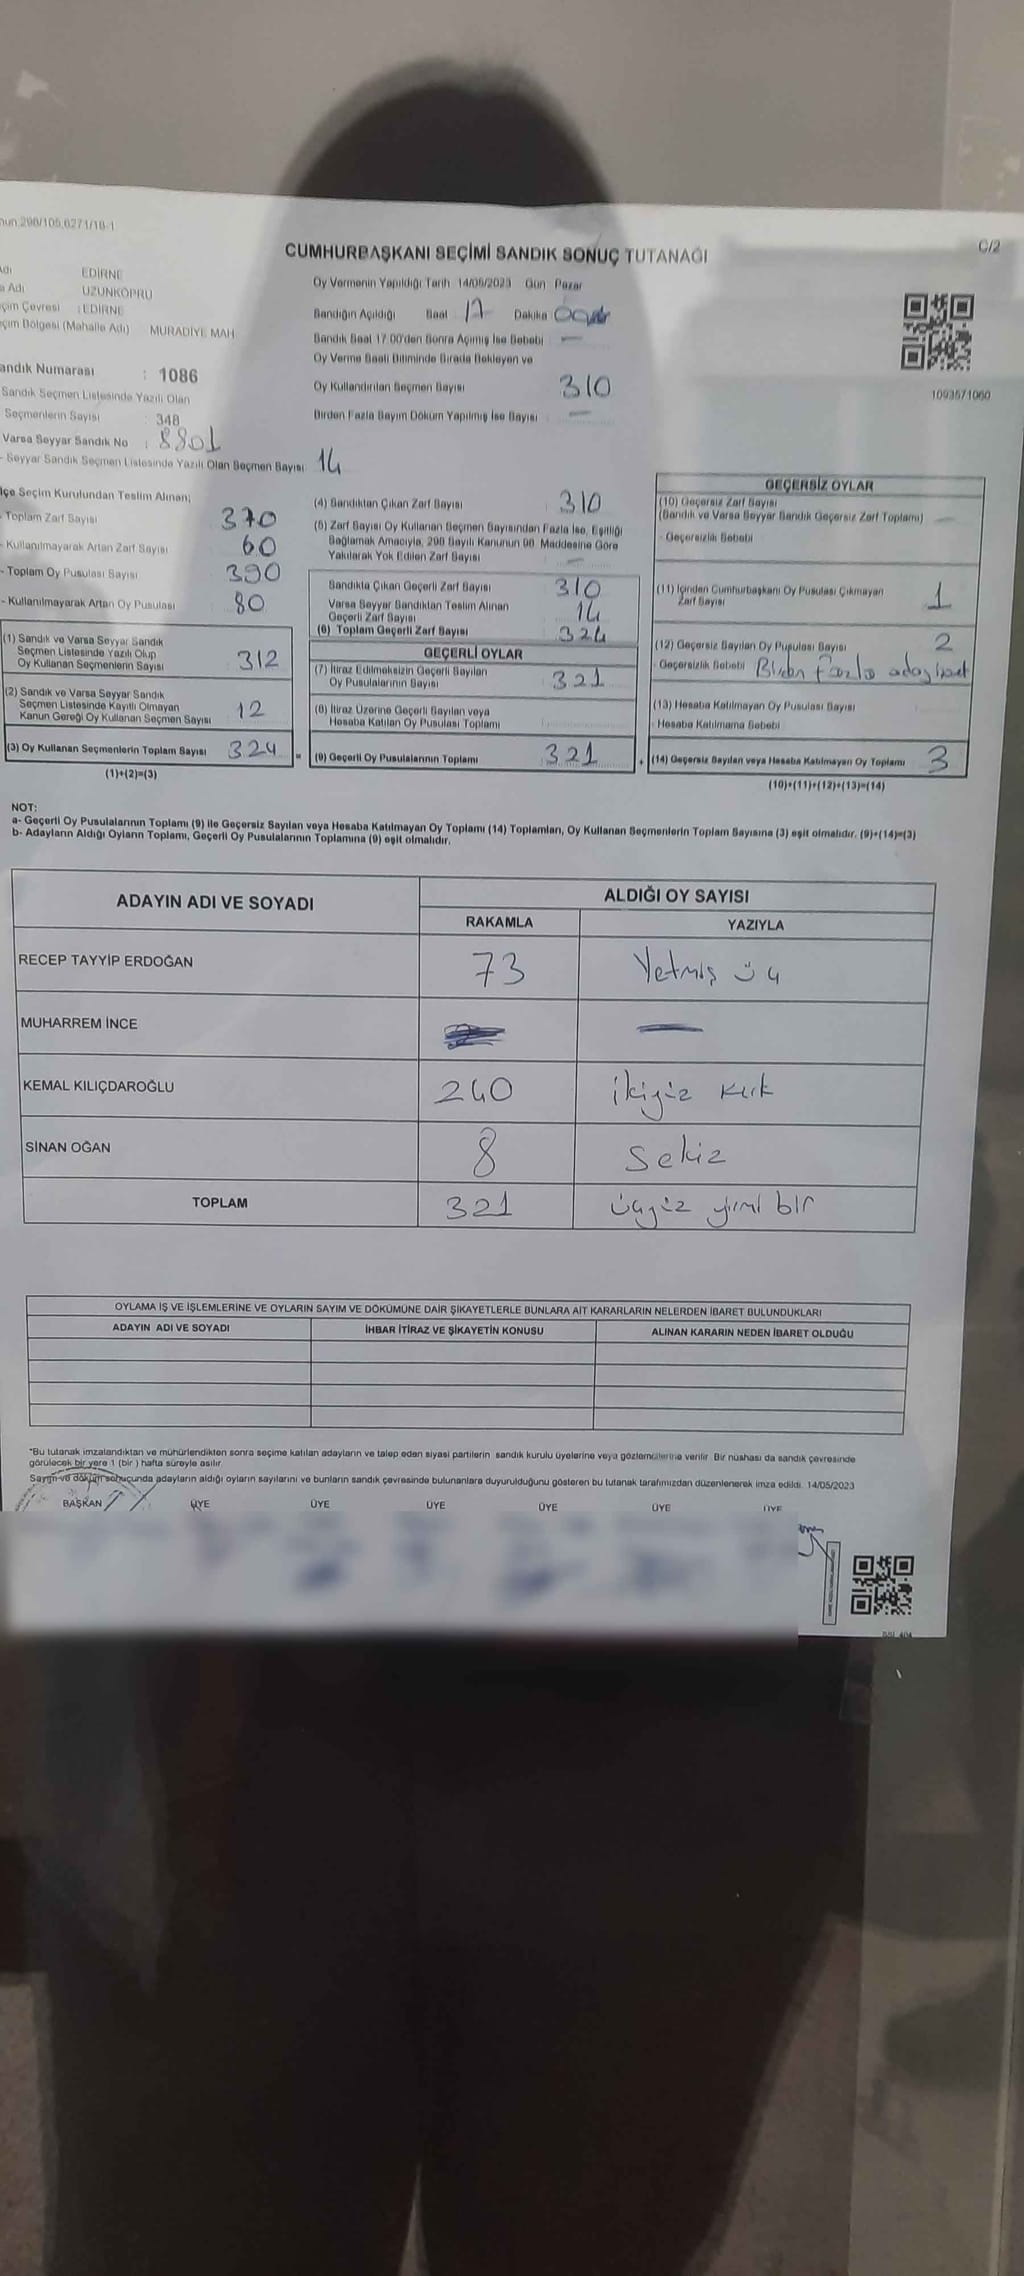 298/105,6271/18-1
C/2
CUMHURBAŞKANI SEÇİMİ SANDIK SONUÇ TUTANAĞI
EDİRNE
Adı UZUNKÖPRÜ
Çevresi : EDİRNE
Bölgesi (Mahalle Adı) MURADİYE MAH.
Oy Vermenin Yapıldığı Tarih 14/05/2023 Gün Pazar
Sandığın Açıldığı Saat 17 Dakika
Sandık Saat 17:00'den Sonra Açımış İse Sebebi : —
Oy Verme Saati Bitiminde Sırada Bekleyen ve
Oy Kullandırılan Seçmen Sayısı 310
Birden Fazla Sayım Döküm Yapılmış İse Sayısı —
1093571060
Numarası : 1086
Sandık Seçmen Listesinde Yazılı Olan
Seçmenlerin Sayısı : 348
Varsa Seyyar Sandık No : 8801
- Seyyar Sandık Seçmen Listesinde Yazılı Olan Seçmen Sayısı 14
Seçim Kurulundan Teslim Alınan;
- Toplam Zarf Sayısı 370
- Kullanılmayarak Artan Zarf Sayısı 60
- Toplam Oy Pusulası Sayısı 390
- Kullanılmayarak Artan Oy Pusulası 80
(1) Sandık ve Varsa Seyyar Sandık
Seçmen Listesinde Yazılı Olup
Oy Kullanan Seçmenlerin Sayısı 312
(2) Sandık ve Varsa Seyyar Sandık
Seçmen Listesinde Kayıtlı Olmayan
Kanun Gereği Oy Kullanan Seçmen Sayısı 12
(3) Oy Kullanan Seçmenlerin Toplam Sayısı 324 =
(1)+(2)=(3)
(4) Sandıktan Çıkan Zarf Sayısı 310
(5) Zarf Sayısı Oy Kullanan Seçmen Sayısından Fazla İse, Eşitliği
Sağlamak Amacıyla, 298 Sayılı Kanunun 98. Maddesine Göre
Yakılarak Yok Edilen Zarf Sayısı —
Sandıkta Çıkan Geçerli Zarf Sayısı 310
Varsa Seyyar Sandıktan Teslim Alınan
Geçerli Zarf Sayısı 14
(6) Toplam Geçerli Zarf Sayısı 324
GEÇERLİ OYLAR
(7) İtiraz Edilmeksizin Geçerli Sayılan
Oy Pusulalarının Sayısı 321
(8) İtiraz Üzerine Geçerli Sayılan veya
Hesaba Katılan Oy Pusulası Toplamı
(9) Geçerli Oy Pusulalarının Toplamı 321 +
GEÇERSİZ OYLAR
(10) Geçersiz Zarf Sayısı
(Sandık ve Varsa Seyyar Sandık Geçersiz Zarf Toplamı) —
- Geçersizlik Sebebi
(11) İçinden Cumhurbaşkanı Oy Pusulası Çıkmayan
Zarf Sayısı 1
(12) Geçersiz Sayılan Oy Pusulası Sayısı 2
- Geçersizlik Sebebi Birden Fazla aday
(13) Hesaba Katılmayan Oy Pusulası Sayısı
- Hesaba Katılmama Sebebi
(14) Geçersiz Sayılan veya Hesaba Katılmayan Oy Toplamı 3
(10)+(11)+(12)+(13)=(14)
NOT:
a- Geçerli Oy Pusulalarının Toplamı (9) ile Geçersiz Sayılan veya Hesaba Katılmayan Oy Toplamı (14) Toplamları, Oy Kullanan Seçmenlerin Toplam Sayısına (3) eşit olmalıdır. (9)+(14)=(3)
b- Adayların Aldığı Oyların Toplamı, Geçerli Oy Pusulalarının Toplamına (9) eşit olmalıdır.
ADAYIN ADI VE SOYADI ALDIĞI OY SAYISI
RAKAMLA YAZIYLA
RECEP TAYYİP ERDOĞAN 73 Yetmiş üç
MUHARREM İNCE —
KEMAL KILIÇDAROĞLU 240 ikiyüz kırk
SİNAN OĞAN 8 Sekiz
TOPLAM 321 üçyüz yirmi bir
OYLAMA İŞ VE İŞLEMLERİNE VE OYLARIN SAYIM VE DÖKÜMÜNE DAİR ŞİKAYETLERLE BUNLARA AİT KARARLARIN NELERDEN İBARET BULUNDUKLARI
ADAYIN ADI VE SOYADI İHBAR İTİRAZ VE ŞİKAYETİN KONUSU ALINAN KARARIN NEDEN İBARET OLDUĞU
*Bu tutanak imzalandıktan ve mühürlendikten sonra seçime katılan adayların ve talep eden siyasi partilerin sandık kurulu üyelerine veya gözlemcilerine verilir. Bir nüshası da sandık çevresinde
görülecek bir yere 1 (bir ) hafta süreyle asılır.
Sayım ve döküm sonucunda adayların aldığı oyların sayılarını ve bunların sandık çevresinde bulunanlara duyurulduğunu gösteren bu tutanak tarafımızdan düzenlenerek imza edildi. 14/05/2023
BAŞKAN ÜYE ÜYE ÜYE ÜYE ÜYE ÜYE